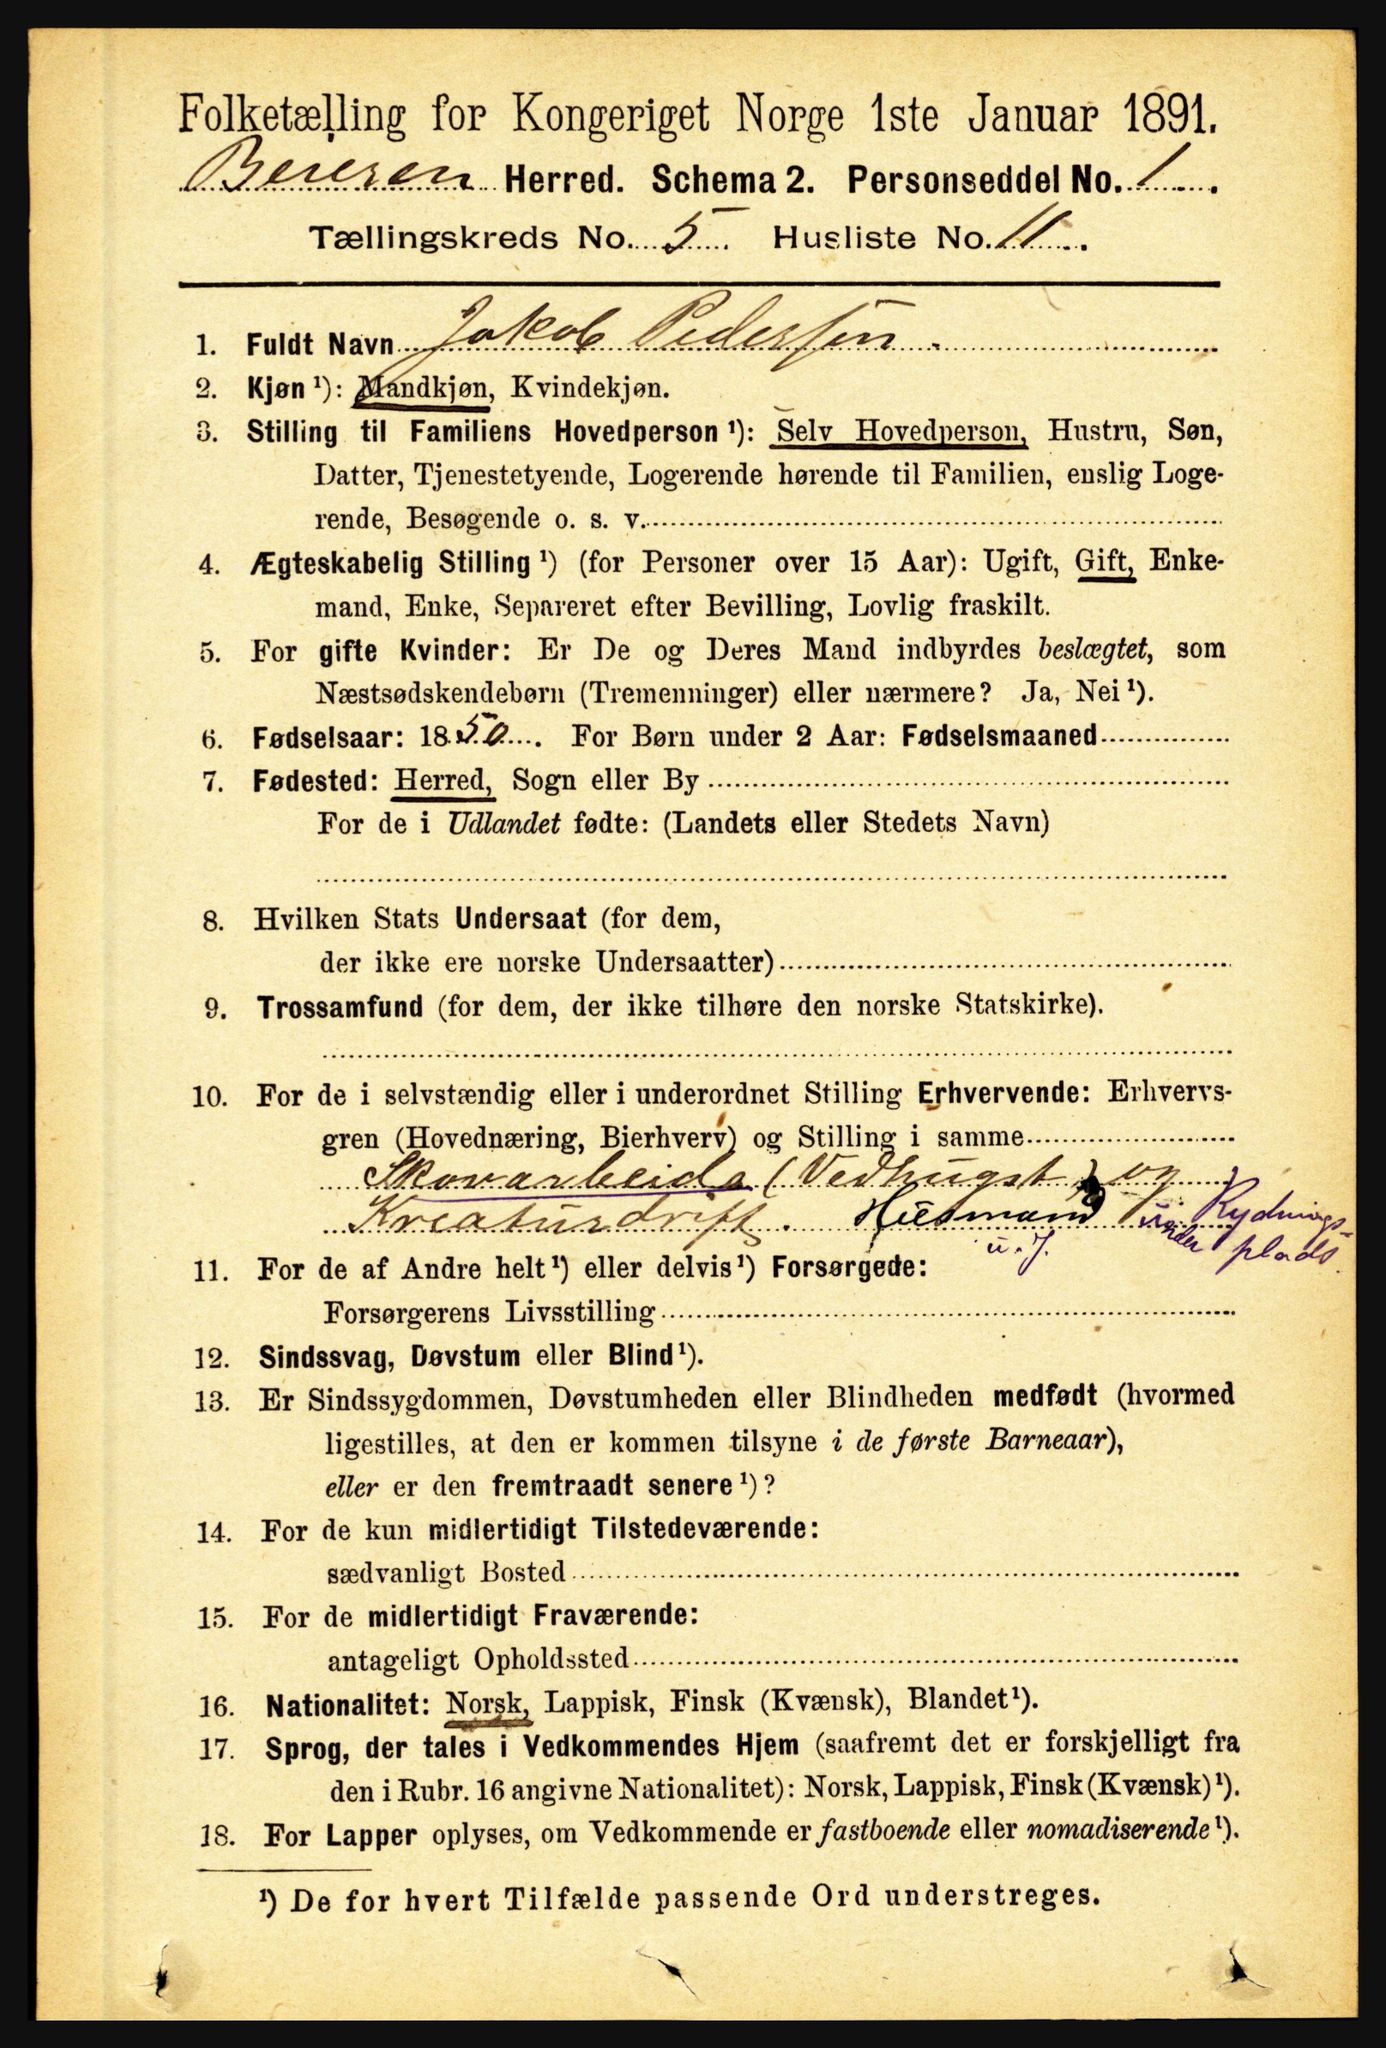 Folketælling for Kongeriget Norge 1ste Januar 1891.
Beieren Herred. Schema 2. Personseddel No. 1.
Tællingskreds No. 5. Husliste No. 11.
1. Fuldt Navn Jakob Pedersen.
2. Kjøn ¹): Mandkjøn, Kvindekjøn.
3. Stilling til Familiens Hovedperson ¹): Selv Hovedperson, Hustru, Søn,
Datter, Tjenestetyende, Logerende hørende til Familien, enslig Loge-
rende, Besøgende o. s. v.
4. Ægteskabelig Stilling ¹) (for Personer over 15 Aar): Ugift, Gift, Enke-
mand, Enke, Separeret efter Bevilling, Lovlig fraskilt.
5. For gifte Kvinder: Er De og Deres Mand indbyrdes beslægtet, som
Næstsødskendebørn (Tremenninger) eller nærmere? Ja, Nei ¹).
6. Fødselsaar: 1850. For Børn under 2 Aar: Fødselsmaaned
7. Fødested: Herred, Sogn eller By
For de i Udlandet fødte: (Landets eller Stedets Navn)
8. Hvilken Stats Undersaat (for dem,
der ikke ere norske Undersaatter)
9. Trossamfund (for dem, der ikke tilhøre den norske Statskirke).
10. For de i selvstændig eller i underordnet Stilling Erhvervende: Erhvervs-
gren (Hovednæring, Bierhverv) og Stilling i samme
Skovarbeide (Vedhugst) og
Kreaturdrift. Husmand under Rydnings-
plads.
u. J.
11. For de af Andre helt ¹) eller delvis ¹) Forsørgede:
Forsørgerens Livsstilling
12. Sindssvag, Døvstum eller Blind ¹).
13. Er Sindssygdommen, Døvstumheden eller Blindheden medfødt (hvormed
ligestilles, at den er kommen tilsyne i de første Barneaar),
eller er den fremtraadt senere ¹)?
14. For de kun midlertidigt Tilstedeværende:
sædvanligt Bosted
15. For de midlertidigt Fraværende:
antageligt Opholdssted
16. Nationalitet: Norsk, Lappisk, Finsk (Kvænsk), Blandet ¹).
17. Sprog, der tales i Vedkommendes Hjem (saafremt det er forskjelligt fra
den i Rubr. 16 angivne Nationalitet): Norsk, Lappisk, Finsk (Kvænsk) ¹).
18. For Lapper oplyses, om Vedkommende er fastboende eller nomadiserende ¹).
¹) De for hvert Tilfælde passende Ord understreges.